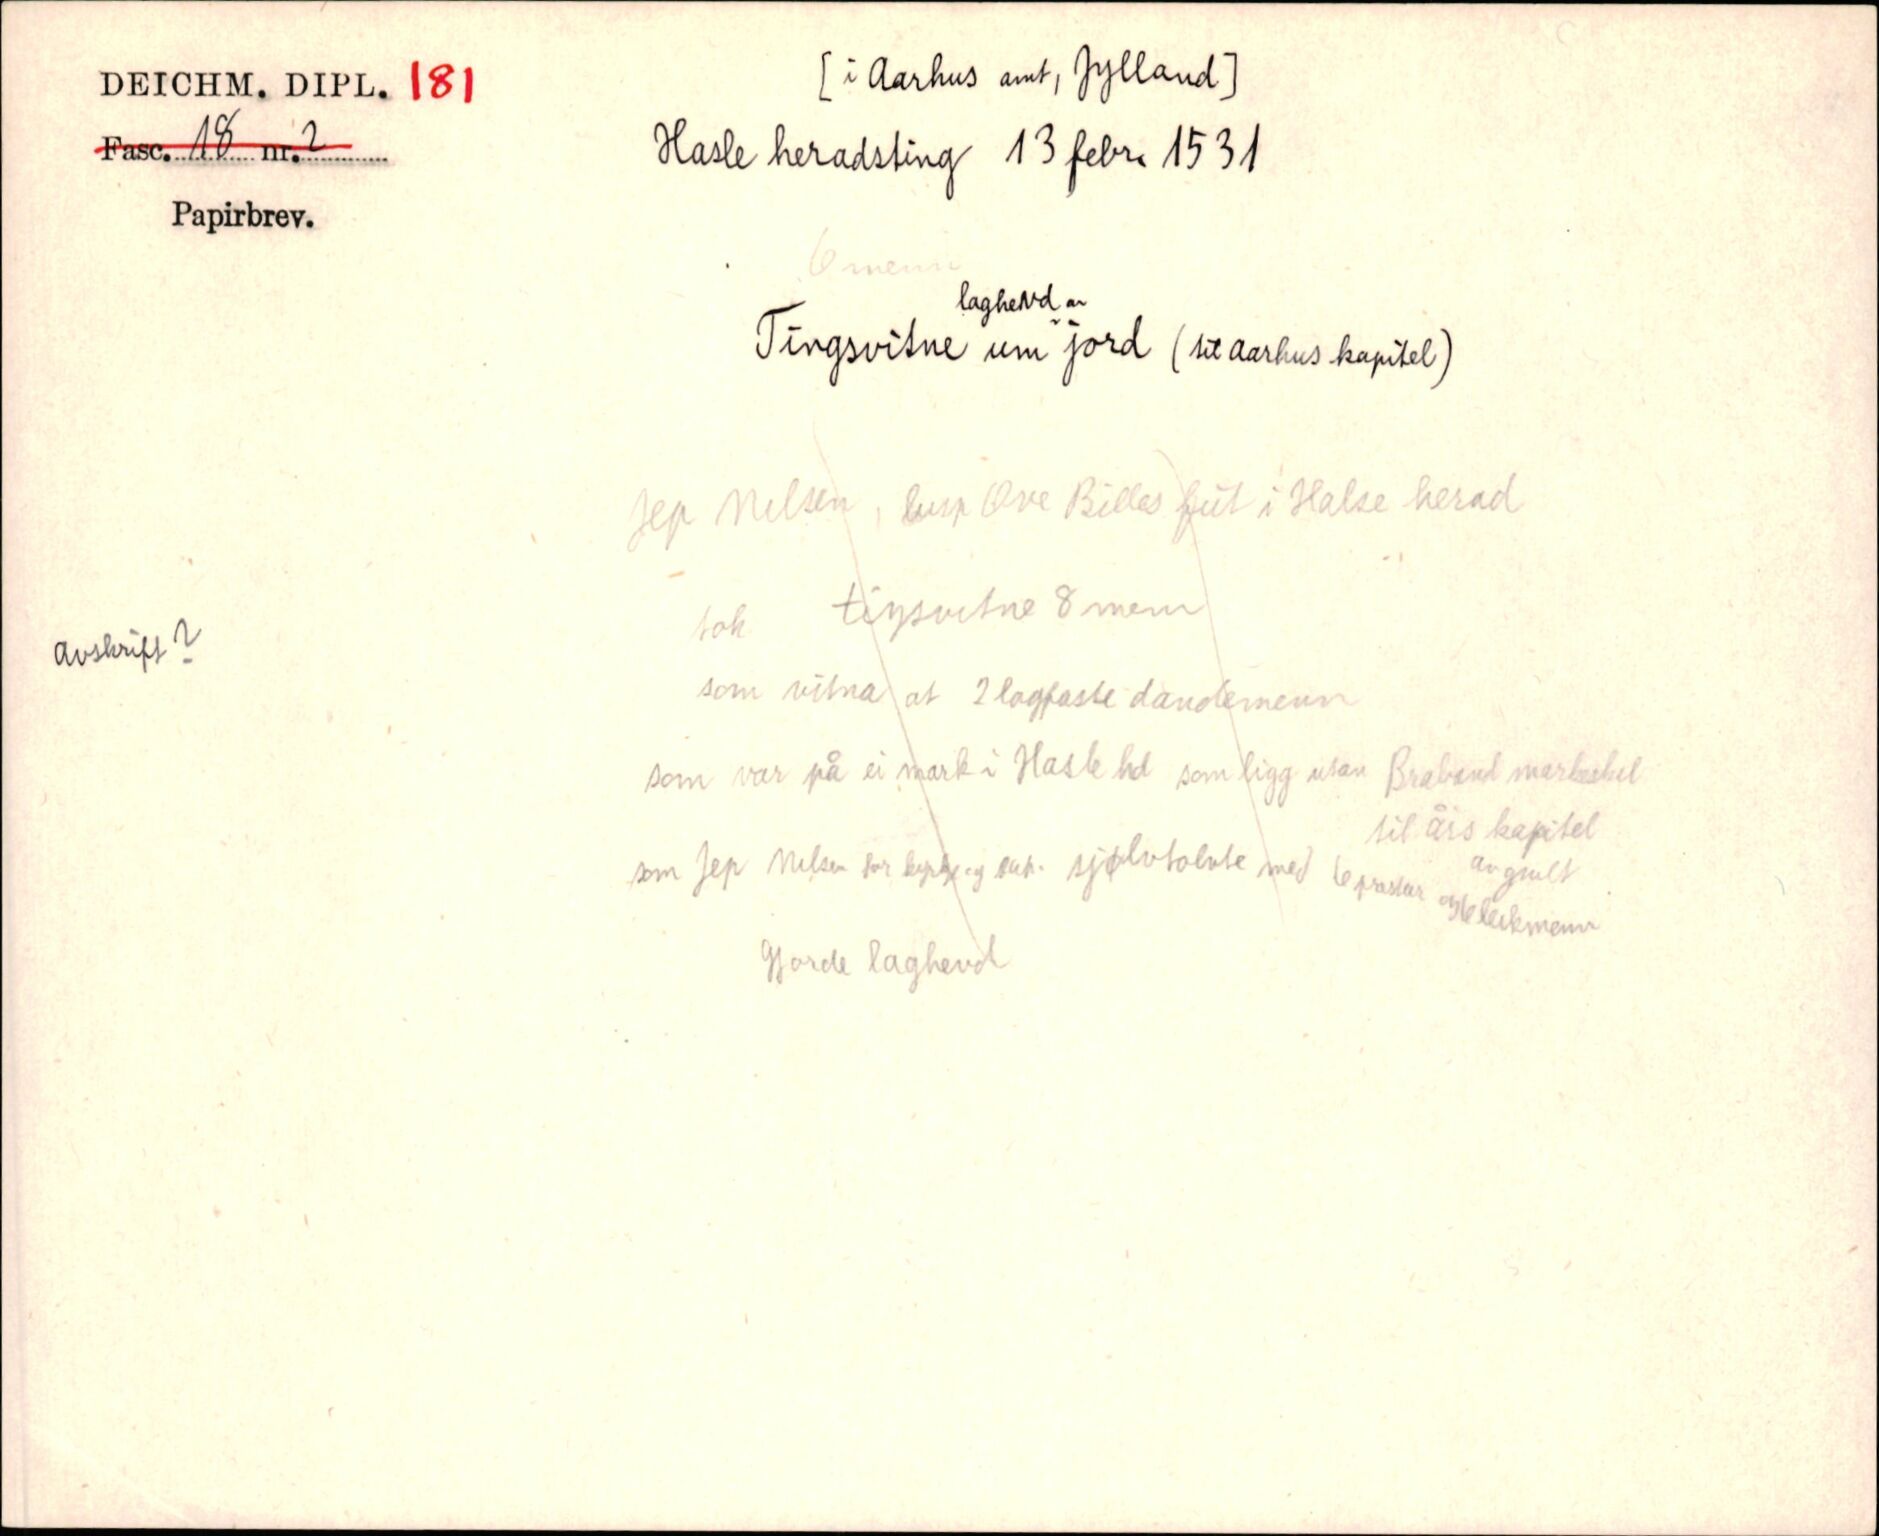 DEICHM. DIPL. 181
Fasc. 18 nr. 2
Papirbrev.
[i Aarhus amt, Jylland]
Hasle heradsting 13 febr. 1531
6 menn
laghevd av
Tingsvitne um jord (til Aarhus kapitel)
Jep Nilsen, Ove Billes fut i Halse herad
tok tingsvitne 8 menn
Avskrift?
som vitna at 2 logfaste dandemenn
som var på ei mark i Hasle hd som ligg utan Braband markeskel
til års kapitel
som Jep Nilsen sjølvtolvte med 6 prestar
og 6 leikmenn
Gjorde laghevd